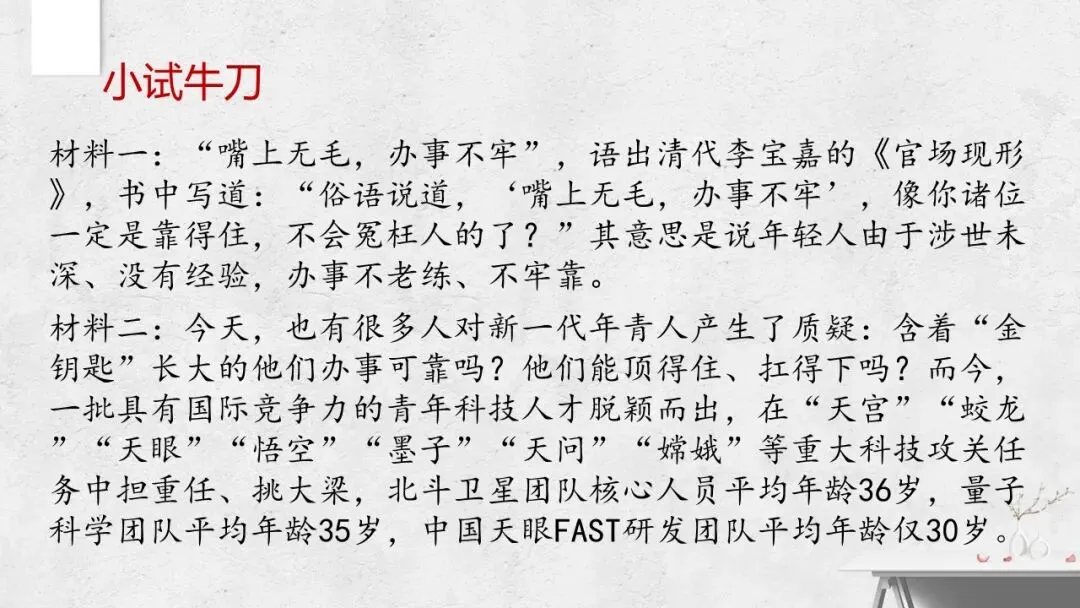 小试牛刀
材料一：“嘴上无毛，办事不牢”，语出清代李宝嘉的《官场现形
》，书中写道：“俗语说道，‘嘴上无毛，办事不牢’，像你诸位
一定是靠得住，不会冤枉人的了？”其意思是说年轻人由于涉世未
深、没有经验，办事不老练、不牢靠。
材料二：今天，也有很多人对新一代年青人产生了质疑：含着“金
钥匙”长大的他们办事可靠吗？他们能顶得住、扛得下吗？而今，
一批具有国际竞争力的青年科技人才脱颖而出，在“天宫”“蛟龙
”“天眼”“悟空”“墨子”“天问”“嫦娥”等重大科技攻关任
务中担重任、挑大梁，北斗卫星团队核心人员平均年龄36岁，量子
科学团队平均年龄35岁，中国天眼FAST研发团队平均年龄仅30岁。